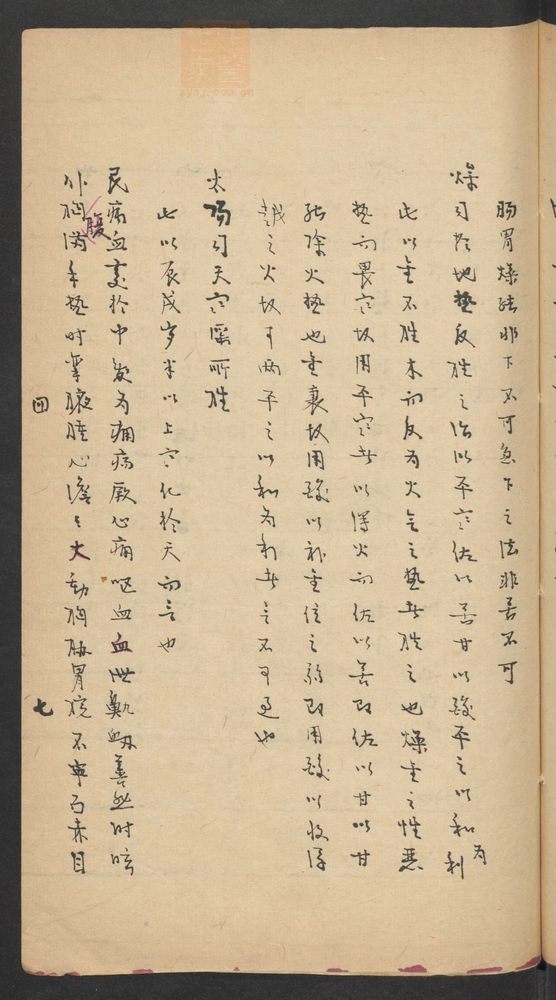 腸胃燥結非下不可急下之法非苦不可
燥司於地熱反勝之治以平寒佐以苦甘以酸平之以和為利
此以金不勝木而反為火氣之熱者勝之也燥金之性惡
熱而畏寒故用平寒者以瀉火而佐以苦即佐以甘以甘
能除火熱也金衰故用酸以補金位之弱即用酸以收浮
越之火故可兩平之以和為利者言不可過也
太陽司天寒淫所勝
此以辰戌歲半以上寒化於天而言也
民病血變於中發為癰瘍厥心痛嘔血血泄鼽衄善悲時眩
仆胸腹滿手熱肘攣腋腫心澹之大動胸脇胃脘不寧面赤目
四
七